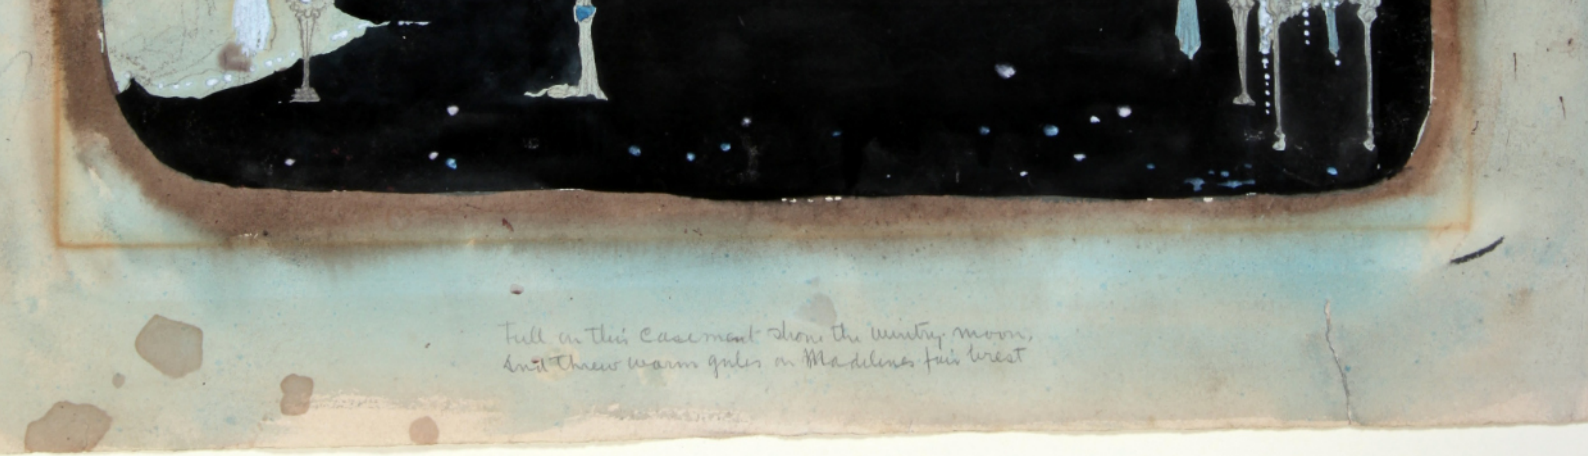 Full on this Casement shone the wintry moon,
And threw warm gules on Madelines fair breast